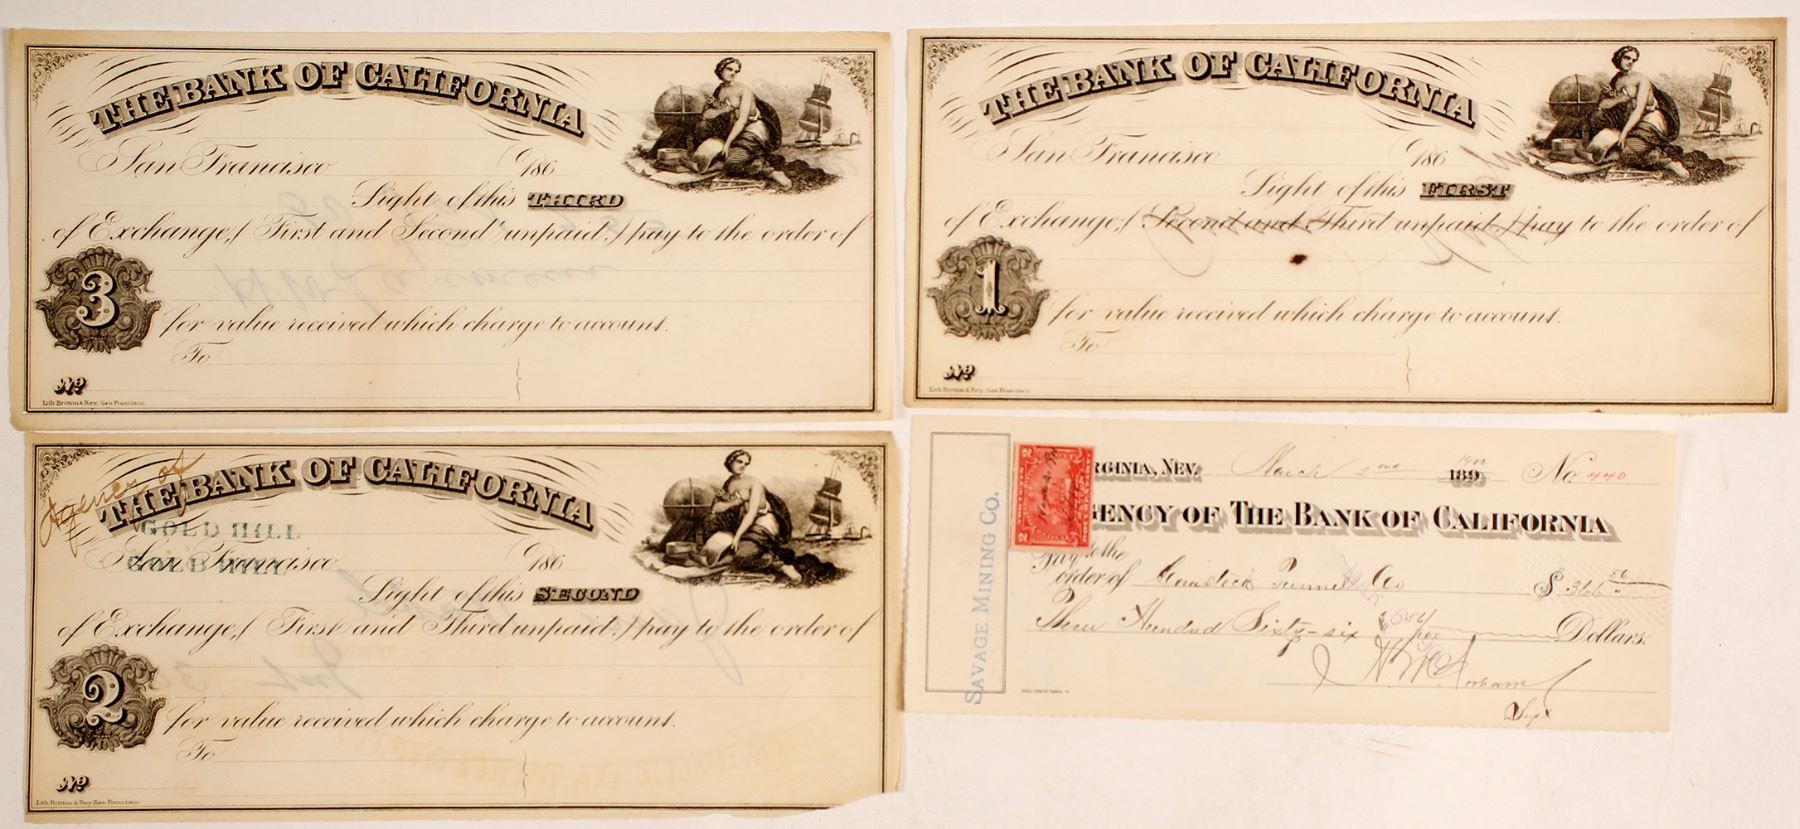 THE BANK OF CALIFORNIA
San Francisco 186
Sight of this THIRD
of Exchange, (First and Second unpaid,) pay to the order of
3
for value received which charge to account.
To
No
Lith Britton & Rey. San Francisco.
THE BANK OF CALIFORNIA
San Francisco 186
Sight of this FIRST
of Exchange, (Second and Third unpaid,) pay to the order of
1
for value received which charge to account.
To
No
Lith Britton & Rey. San Francisco.
Agency of
THE BANK OF CALIFORNIA
GOLD HILL
San Francisco 186
GOLD HILL
Sight of this SECOND
of Exchange, (First and Third unpaid,) pay to the order of
2
for value received which charge to account.
To
No
Lith Britton & Rey San Francisco
SAVAGE MINING CO.
2 2
RGINIA, NEV. March 2nd 1900 189 No. 440
GENCY OF THE BANK OF CALIFORNIA
Pay to the
order of Comstock Tunnel Co $ 366 56
Three Hundred Sixty-six 56/100 Dollars.
Supt